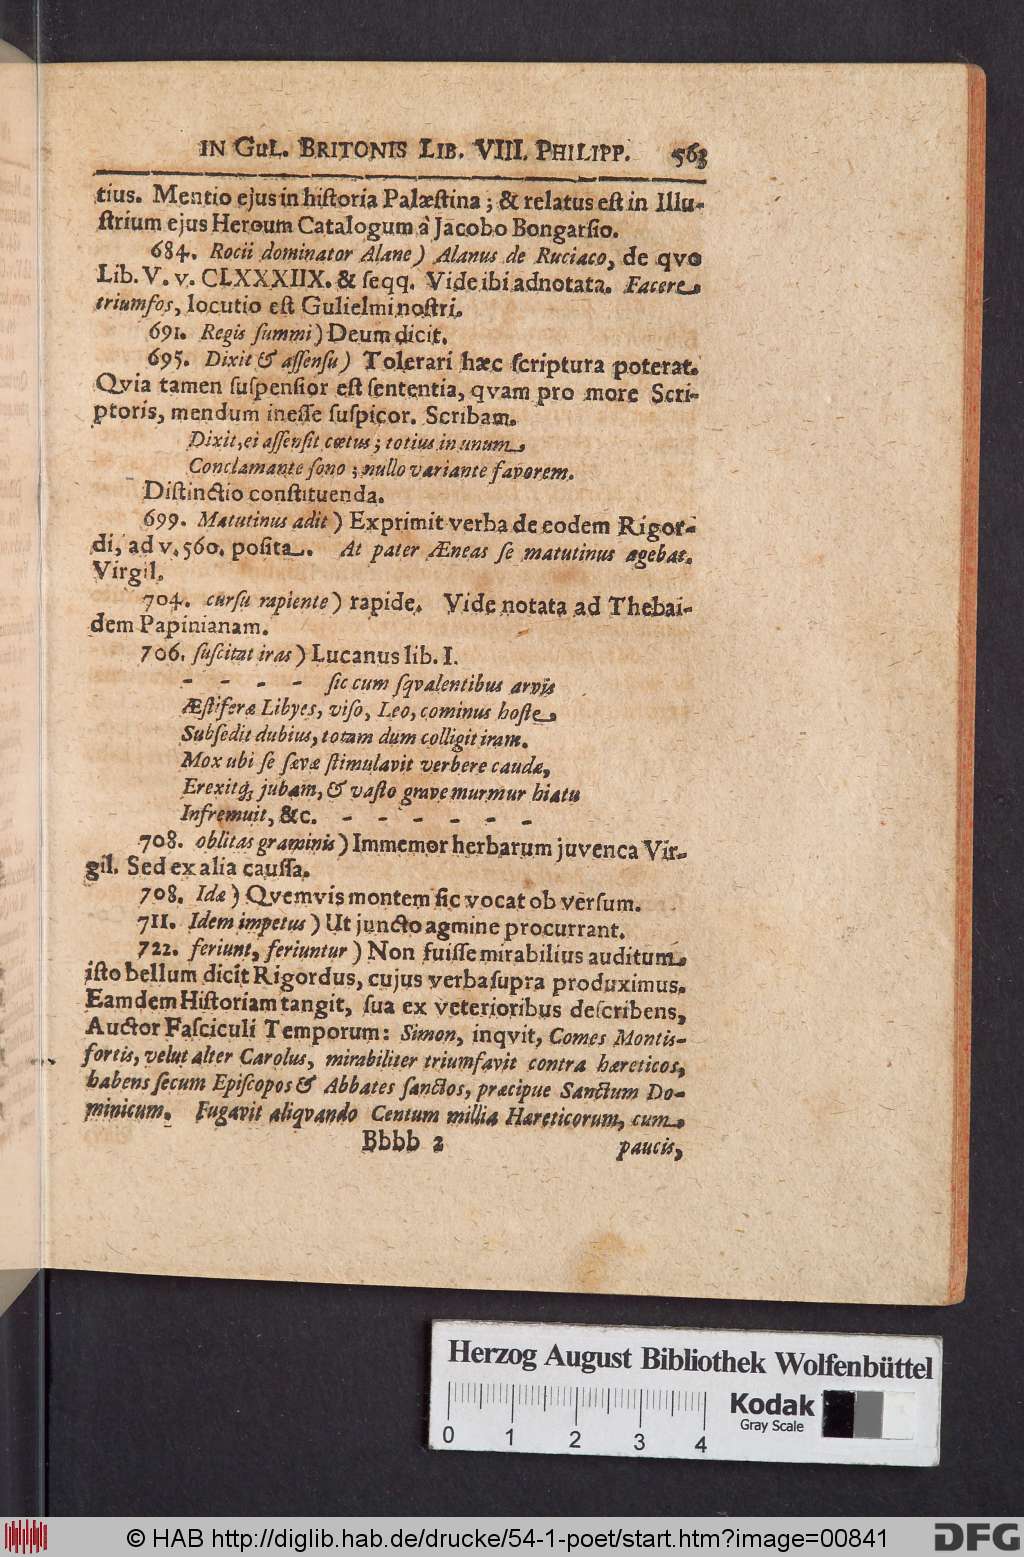 IN GUL. BRITONIS LIB. VIII. PHILIPP. 563
tius. Mentio ejus in historia Palæstina; & relatus est in Illu-
strium ejus Heroum Catalogum à Jacobo Bongarsio.
684. Rocii dominator Alane) Alanus de Ruciaco, de qvo
Lib. V. v. CLXXXIIX. & seqq. Vide ibi adnotata. Facere
triumfos, locutio est Gulielmi nostri.
691. Regis summi) Deum dicit.
695. Dixit & assensu) Tolerari hæc scriptura poterat.
Qvia tamen suspensior est sententia, qvam pro more Scri-
ptoris, mendum inesse suspicor. Scribam.
Dixit, ei assensit cœtus; totius in unum
Conclamante sono; nullo variante favorem.
Distinctio constituenda.
699. Matutinus adit) Exprimit verba de eodem Rigor-
di, ad v. 560. posita. At pater Æneas se matutinus agebat.
Virgil.
704. cursu rapiente) rapide. Vide notata ad Thebai-
dem Papinianam.
706. suscitat iras) Lucanus lib. I.
- - - - sic cum sqvalentibus arvis
Æstiferæ Libyes, viso, Leo, cominus hoste
Subsedit dubius, totam dum colligit iram.
Mox ubi se sævæ stimulavit verbere caudæ,
Erexitq; jubam, & vasto grave murmur hiatu
Infremuit, &c. - - - - - -
708. oblitas graminis) Immemor herbarum juvenca Vir-
gil. Sed ex alia caussa.
708. Idæ) Qvemvis montem sic vocat ob versum.
711. Idem impetus) Ut juncto agmine procurrant.
722. feriunt, feriuntur) Non fuisse mirabilius auditum
isto bellum dicit Rigordus, cujus verba supra produximus.
Eamdem Historiam tangit, sua ex veterioribus describens,
Auctor Fasciculi Temporum: Simon, inqvit, Comes Montis-
fortis, velut alter Carolus, mirabiliter triumfavit contra hæreticos,
habens secum Episcopos & Abbates sanctos, præcipue Sanctum Do-
minicum. Fugavit aliqvando Centum millia Hæreticorum, cum
Bbbb 2 paucis,
Herzog August Bibliothek Wolfenbüttel
Kodak
Gray Scale
0 1 2 3 4
© HAB http://diglib.hab.de/drucke/54-1-poet/start.htm?image=00841
DFG